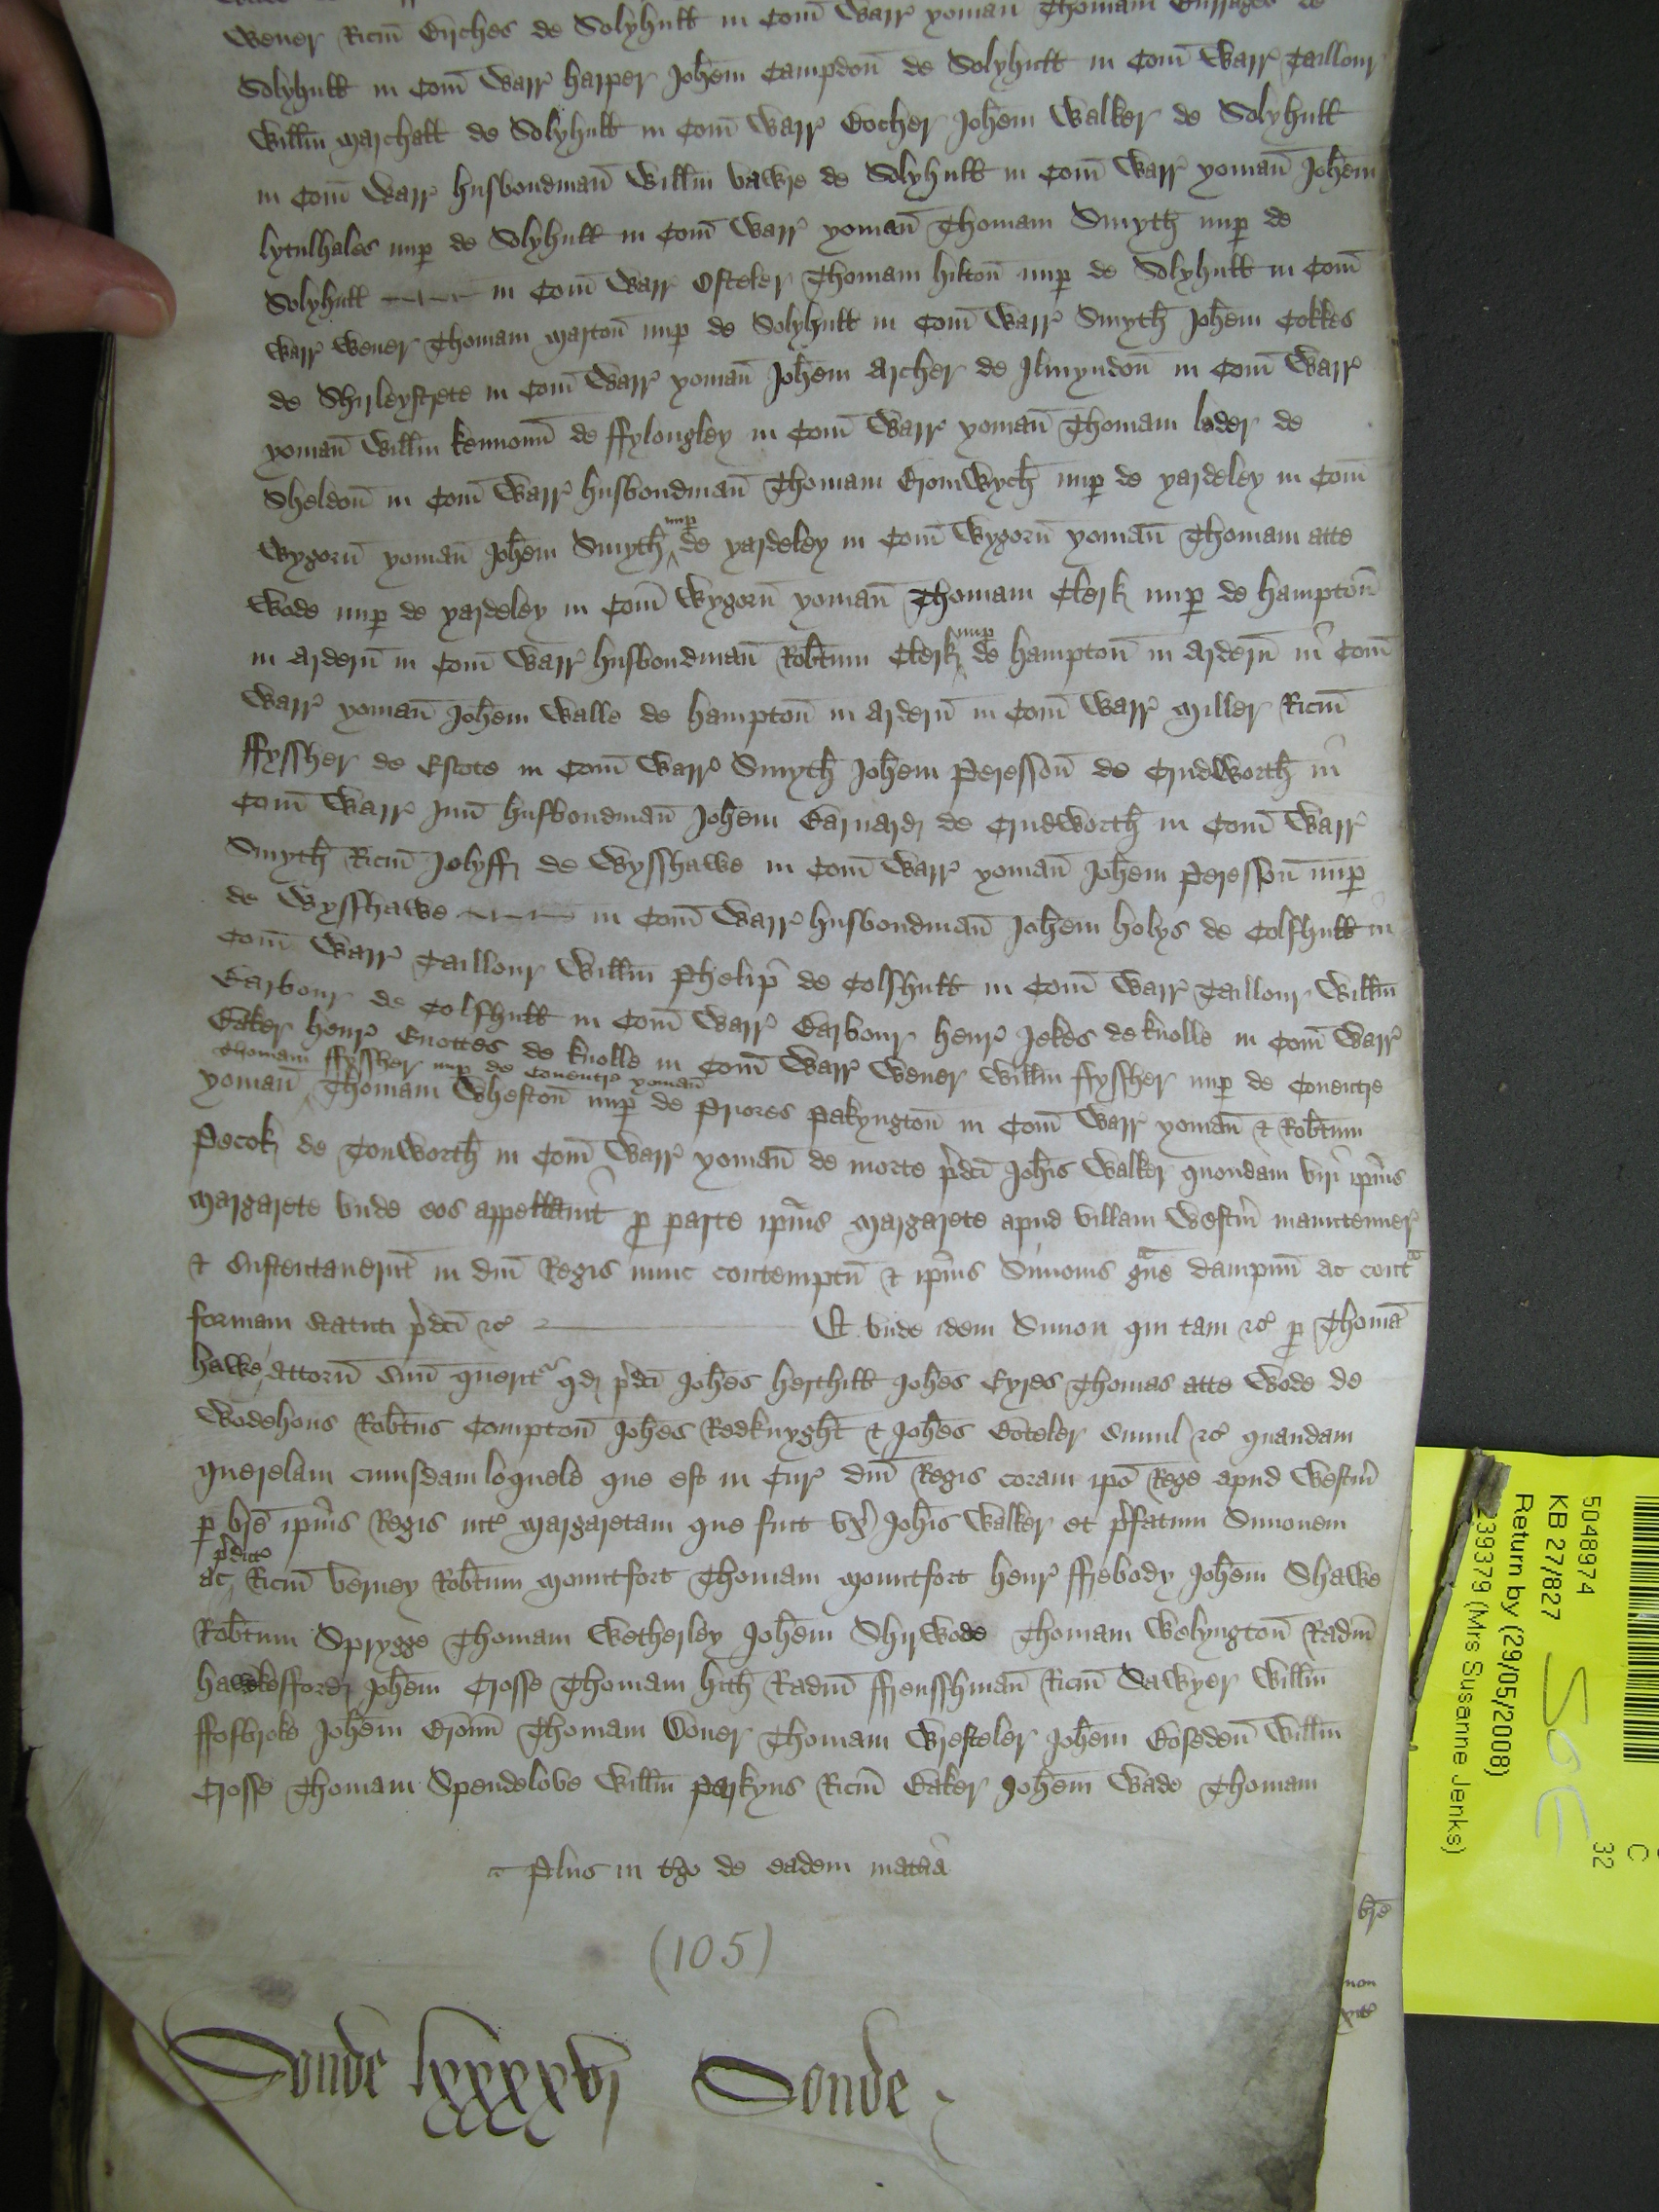 Wever Ricm̄ Birches de Solyhull in Com̄ Warr yoman Thomam
Solyhull in Com̄ Warr harper Joh̄em Campdon̄ de Solyhull in Com̄ Warr Taillour
Willm̄ Marchall de Solyhull in Com̄ Warr Bocher Joh̄em Walker de Solyhull
in Com̄ Warr husbondman̄ Willm̄ Vawre de Solyhull in Com̄ Warr yoman̄ Joh̄em
lytulhales nup̄ de Solyhull in Com̄ Warr yoman̄ Thomam Smyth nup̄ de
Solyhull in Com̄ Warr Osteler Thomam hilton̄ nup̄ de Solyhull in Com̄
Warr Wever Thomam Marton̄ nup̄ de Solyhull in Com̄ Warr Smyth Joh̄em Cokkes
de Shirleystrete in Com̄ Warr yoman̄ Joh̄em Archer de Ilmyndon̄ in Com̄ Warr
yoman̄ Willm̄ kennonn̄ de ffylongley in Com̄ Warr yoman̄ Thomam lader de
Sheldon̄ in Com̄ Warr husbondman̄ Thomam Bromwych nup̄ de yardeley in Com̄
Wygorn̄ yoman̄ Joh̄em Smyth nup̄ de yardeley in Com̄ Wygorn̄ yoman̄ Thomam atte
Wode nup̄ de yardeley in Com̄ Wygorn̄ yoman̄ Thomam Clerk nup̄ de hampton̄
in Ardern̄ in Com̄ Warr husbondman̄ Rob̄tum Clerk nup̄ de hampton̄ in Ardern̄ in Com̄
Warr yoman̄ Joh̄em Walle de hampton̄ in Ardern̄ in Com̄ Warr Miller Ricm̄
ffyssher de Estote in Com̄ Warr Smyth Joh̄em Peresson̄ de Crudworth in
Com̄ Warr Jun̄ husbondman̄ Joh̄em Barnard de Crudworth in Com̄ Warr
Smyth Ricm̄ Jolyff de Wysshawe in Com̄ Warr yoman̄ Joh̄em Peresson̄ nup̄
de Wysshawe in Com̄ Warr husbondman̄ Joh̄em holys de Colshull in
Com̄ Warr Taillour Willm̄ Phelip̄ de Colshull in Com̄ Warr Taillour Willm̄
Barbour de Colshull in Com̄ Warr Barbour henr̄ Jekes de knolle in Com̄ Warr
Baker henr̄ Enottes de knolle in Com̄ Warr Wever Willm̄ ffyssher nup̄ de Coventre
Thomam ffyssher nup̄ de Coventr̄ yoman̄
yoman̄ Thomam Wheston̄ nup̄ de Priores Pakyngton̄ in Com̄ Warr yoman̄ & Rob̄tum
Pecok de Tonworth in Com̄ Warr yoman̄ de morte p̄dc̄i Joh̄is Walker quondam viri ip̄ius
Margarete unde eos appellavit p parte ip̄ius Margarete apud villam Westm̄ manutenuer̄
& sustentaverūt in dn̄i Regis nunc contemptū & ip̄ius Simonis gve dampnū ac contᵃ
formam statuti p̄dc̄i rc̄ Et unde idem Simon qui tam rc̄ p Thomā
hawe attorn̄ suū querit qd p̄dc̄i Joh̄es herthill Joh̄es Eyres Thomas atte Wode de
Wodehous Rob̄tus Compton̄ Joh̄es Redknyght & Joh̄es Boteler simul rc̄ quandam
querelam cuiusdam loquele que est in Cur̄ dn̄i Regis coram ip̄o Rege apud Westm̄
p br̄e ip̄ius Regis int̄ Margaretam que fuit ux̄ Joh̄is Walker et p̄fatum Simonem
ac p̄dict̄ Ricm̄ Verney Rob̄tum Mountfort Thomam Mountfort henr̄ ffrebody Joh̄em Shawe
Rob̄tum Sprygge Thomam Wetherley Joh̄em Shirwode Thomam Welyngton̄ Radm̄
hawkesford Joh̄em Crosse Thomam hith Radm̄ ffrensshman̄ Ricm̄ Sawyer Willm̄
ffosbroke Joh̄em Bronn̄ Thomam Over Thomam Wresteler Joh̄em Boseden̄ Willm̄
Crosse Thomam Spendelove Willm̄ Parkyns Ricm̄ Baker Joh̄em Wade Thomam
Plus in tgo de eadem mat̄ia
(105)
Sonde lxxxxvj Sonde
br̄e
non
5048974
KB 27/827
Return by (29/05/2008)
239379 (Mrs Susanne Jenks)
SOE
32
C